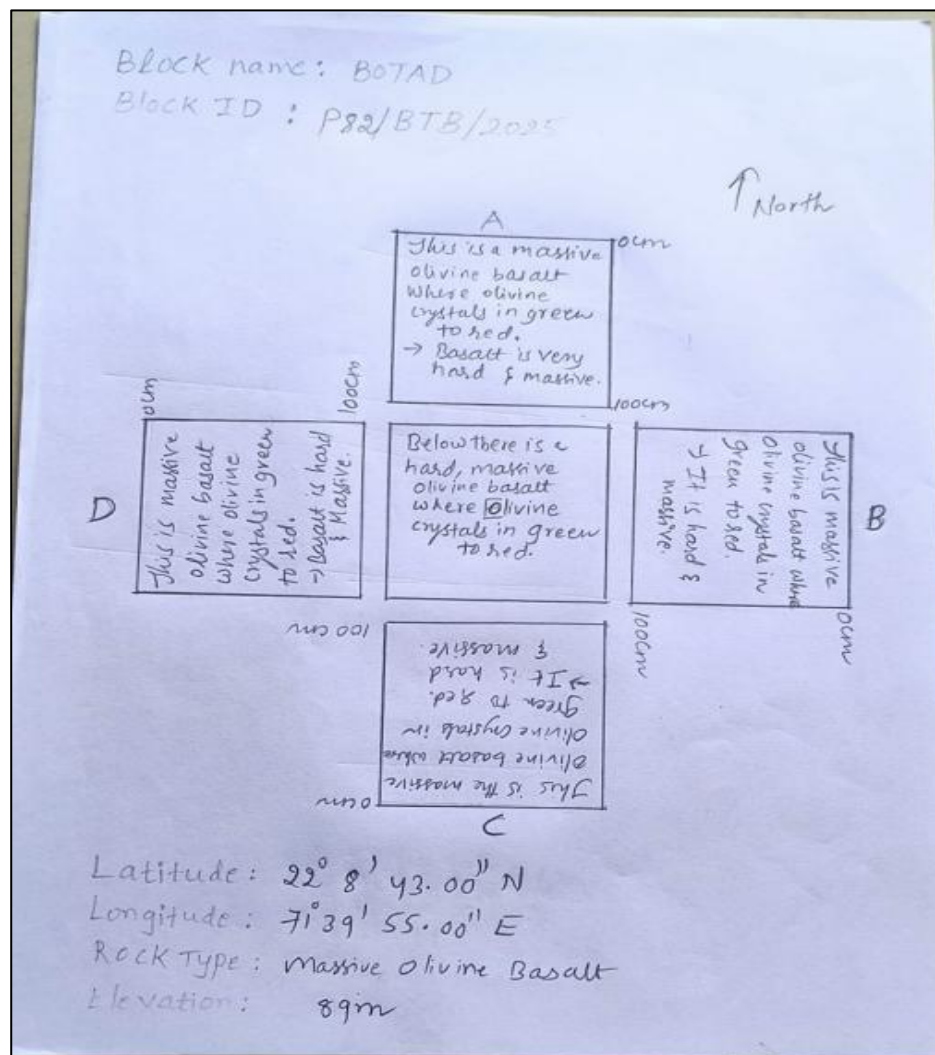 Block name: BOTAD
Block ID: P82/BTB/2025
↑ North
A
0cm
This is a massive
olivine basalt
where olivine
crystals in green
to red.
→ Basalt is very
hard & massive.
100cm
D
0cm
100cm
This is massive
olivine basalt
where olivine
crystals in green
to red.
→ Basalt is hard
& Massive.
Below there is a
hard, massive
olivine basalt
where olivine
crystals in green
to red.
B
This is massive
olivine basalt where
olivine crystals in
green to red.
→ It is hard &
massive.
0cm
100cm
C
This is the massive
olivine basalt where
olivine crystals in
green to red.
→ It is hard
& massive.
0cm
100cm
Latitude: 22° 8' 43.00" N
Longitude: 71° 39' 55.00" E
Rock Type: Massive Olivine Basalt
Elevation: 89m